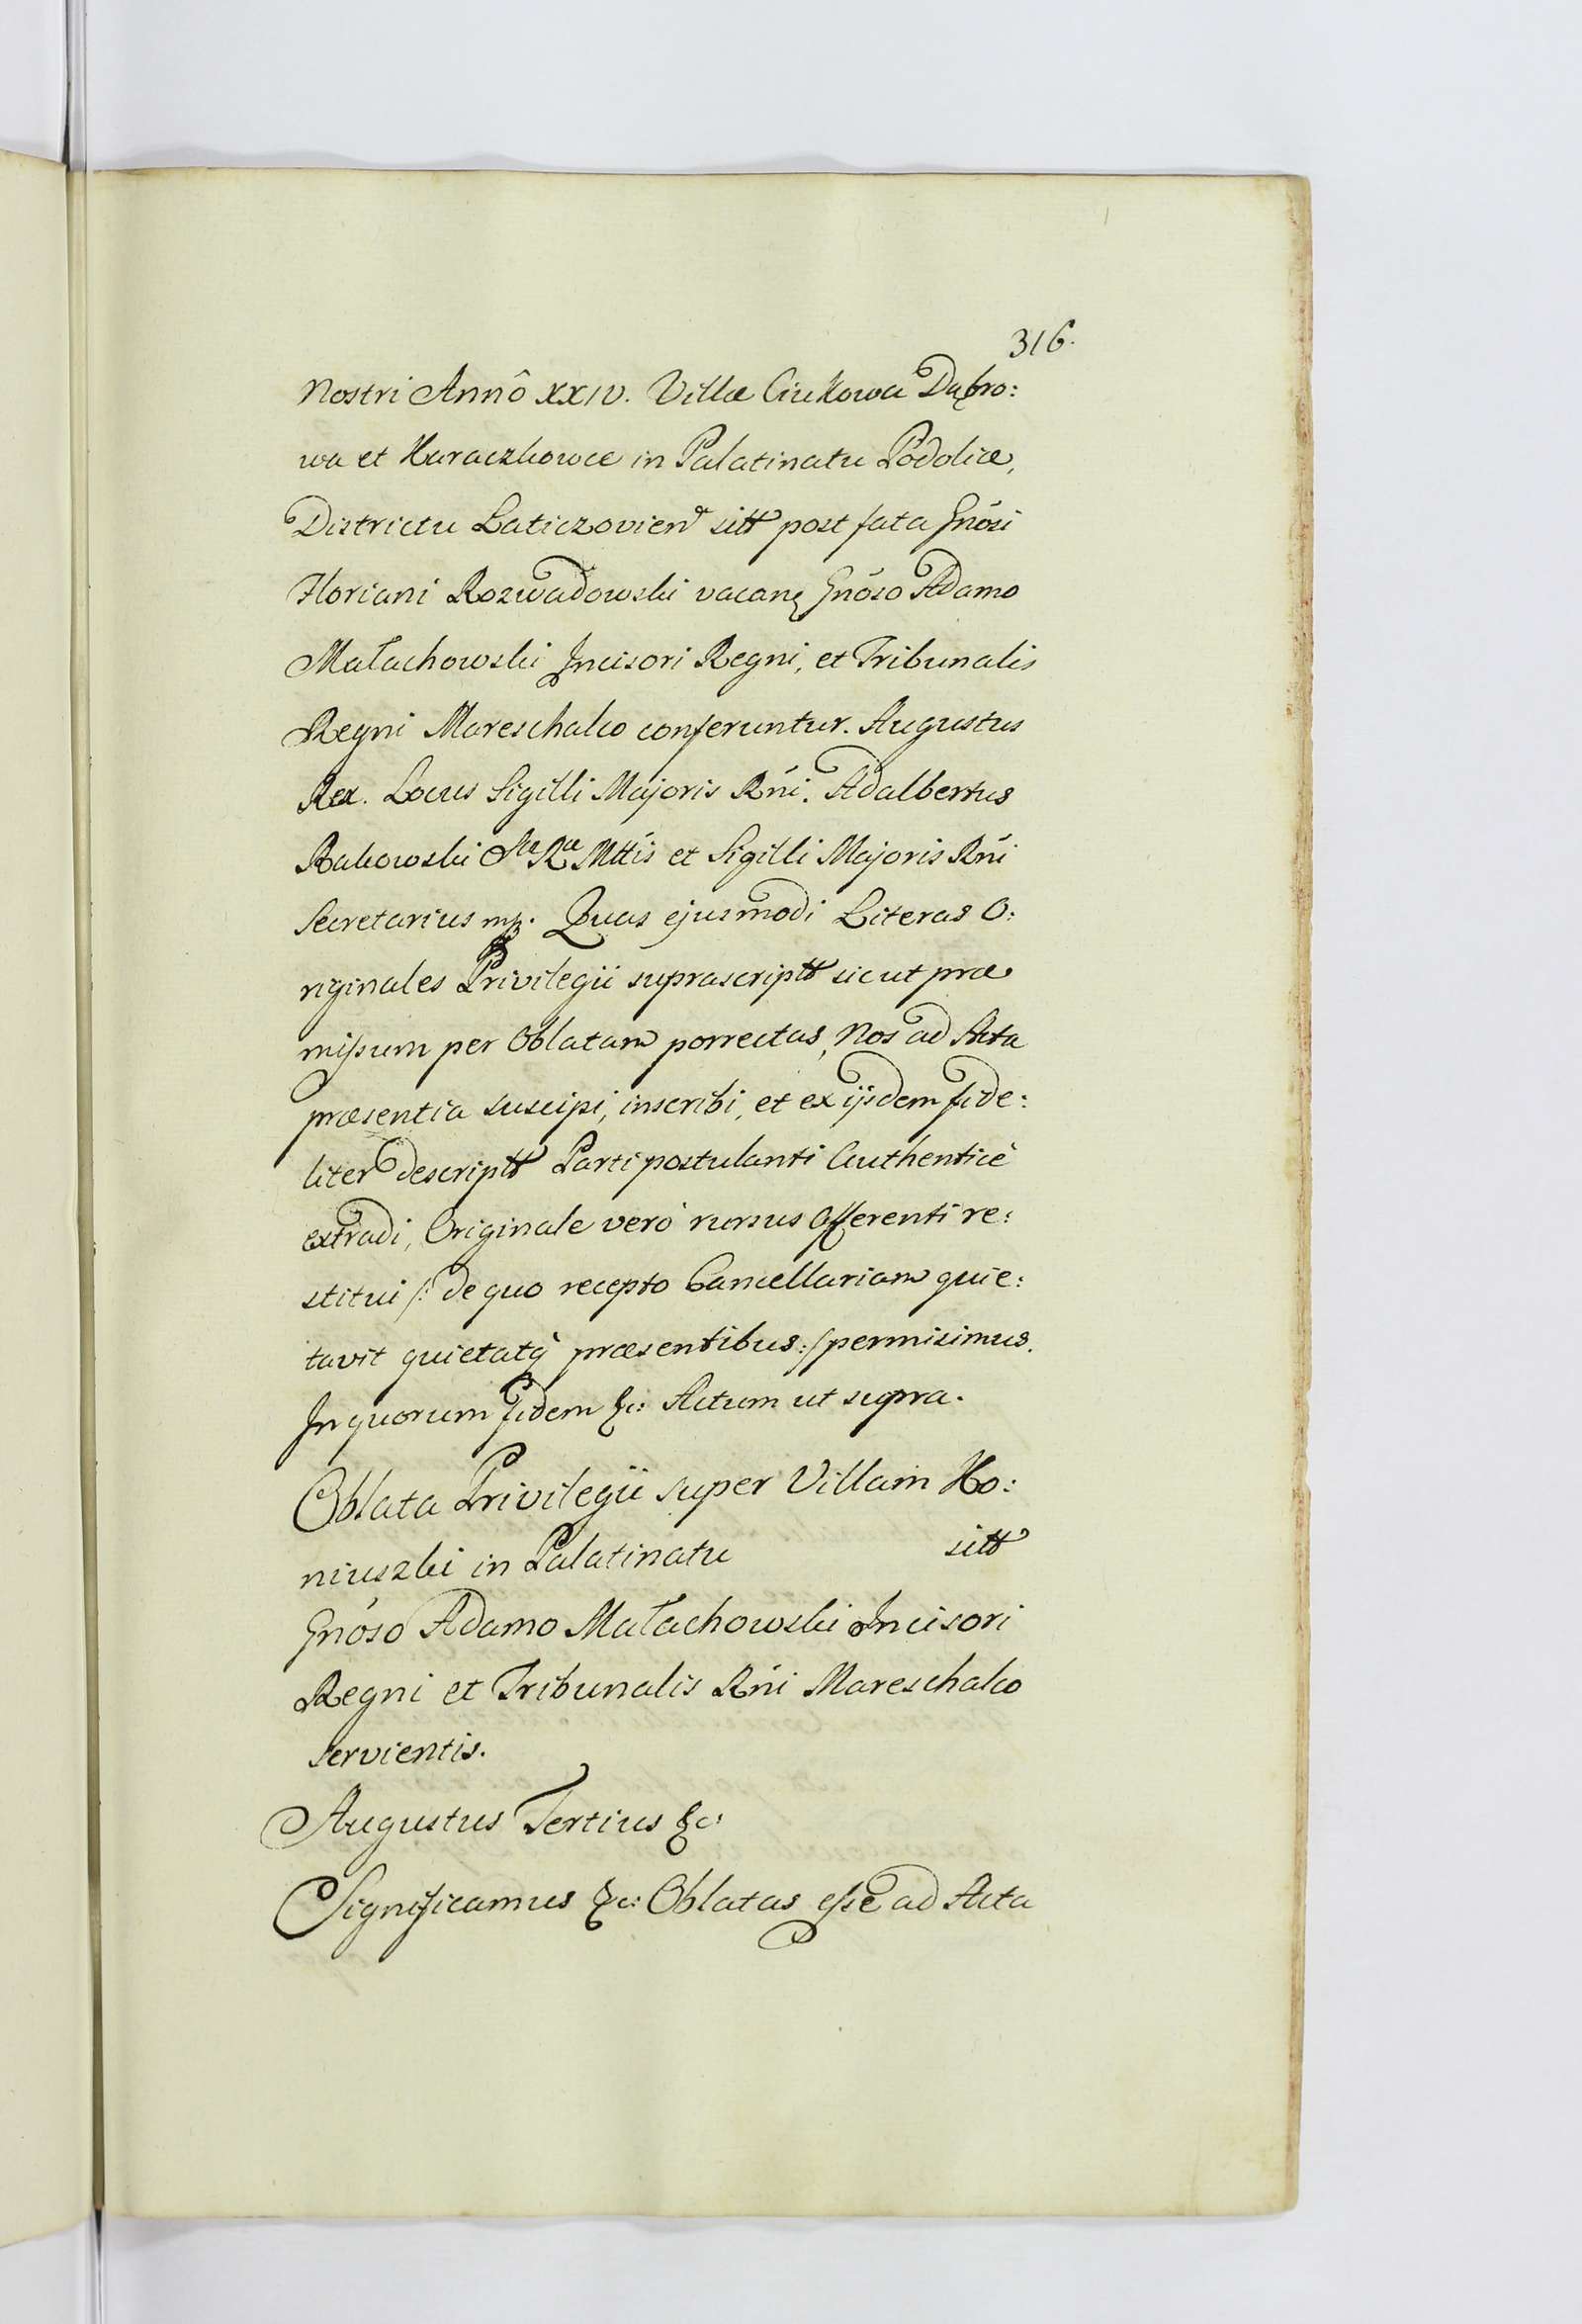 316.
Nostri Annô XXIV. Villæ Ciukowa Dąbro:
wa et Karaczkowce in Palatinatu Podoliæ,
Districtu Laticzovien sitt post fata Gnósi
Floriani Rozwadowski vacan Gnóso Adamo
Małachowski Incisori Regni, et Tribunalis
Regni Mareschalco conferuntur. Augustus
Rex. Locus Sigilli Majoris Rńi. Adalbertus
Rakowski Sræ Ræ Mttis et Sigilli Majoris Rńi
Secretarius mp. Quas ejusmodi Literas O:
riginales Privilegii suprascriptt sicut præ
missum per Oblatam porrectas, Nos ad Acta
præsentia suscipi, inscribi, et ex ijsdem fide:
liter descriptt Parti postulanti Authenticè
extradi, Originale verò rursus Offerenti re:
stitui /: de quo recepto Cancellariam quie:
tavit quietatq̀ præsentibus :/ permisimus.
In quorum fidem &c: Actum ut supra.
Oblata Privilegii super Villam Ho:
niuszki in Palatinatu sitt
Gnóso Adamo Małachowski Incisori
Regni et Tribunalis Rńi Mareschalco
servientis.
Augustus Tertius &c:
Significamus &c: Oblatas esse ad Acta